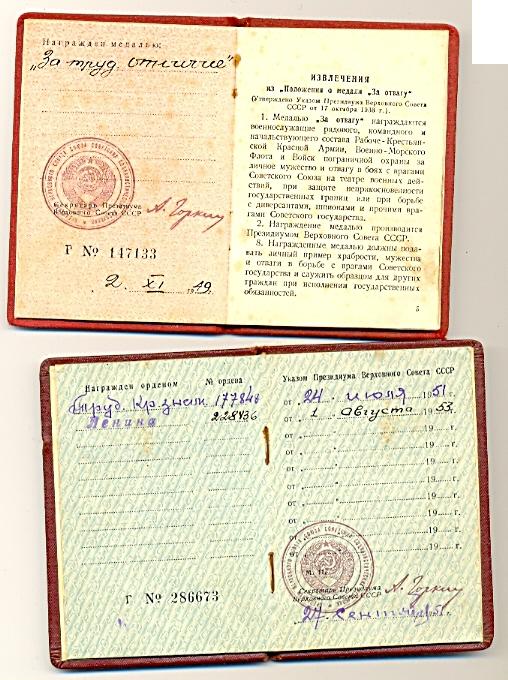 Награжден медалью:
„За труд. отличие"
Секретарь Президиума
Верховного Совета СССР
А. Горкин
Г № 147133
2. XI 1949 г.
ИЗВЛЕЧЕНИЯ
из „Положения о медали „За отвагу"
(Утверждено Указом Президиума Верховного Совета
СССР от 17 октября 1938 г.).
1. Медалью „За отвагу" награждаются
военнослужащие рядового, командного и
начальствующего состава Рабоче-Крестьян-
ской Красной Армии, Военно-Морского
Флота и Войск пограничной охраны за
личное мужество и отвагу в боях с врагами
Советского Союза на театре военных дей-
ствий, при защите неприкосновенности
государственных границ или при борьбе
с диверсантами, шпионами и прочими вра-
гами Советского государства.
2. Награждение медалью производится
Президиумом Верховного Совета СССР.
8. Награжденные медалью должны пода-
вать личный пример храбрости, мужества
и отваги в борьбе с врагами Советского
государства и служить образцом для других
граждан при исполнении государственных
обязанностей.
5
Награжден орденом № ордена
Труд. Кр. Знам 177848
Ленина 228436
Г № 286673
Указом Президиума Верховного Совета СССР
от „24 " июля 1951 г.
от „ 1 " августа 1953 г.
от „ " 19 г.
от „ " 19 г.
от „ " 19 г.
от „ " 19 г.
от „ " 19 г.
от „ " 19 г.
от „ " 19 г.
М. П.
Секретарь Президиума
Верховного Совета СССР
А. Горкин
27 сентября